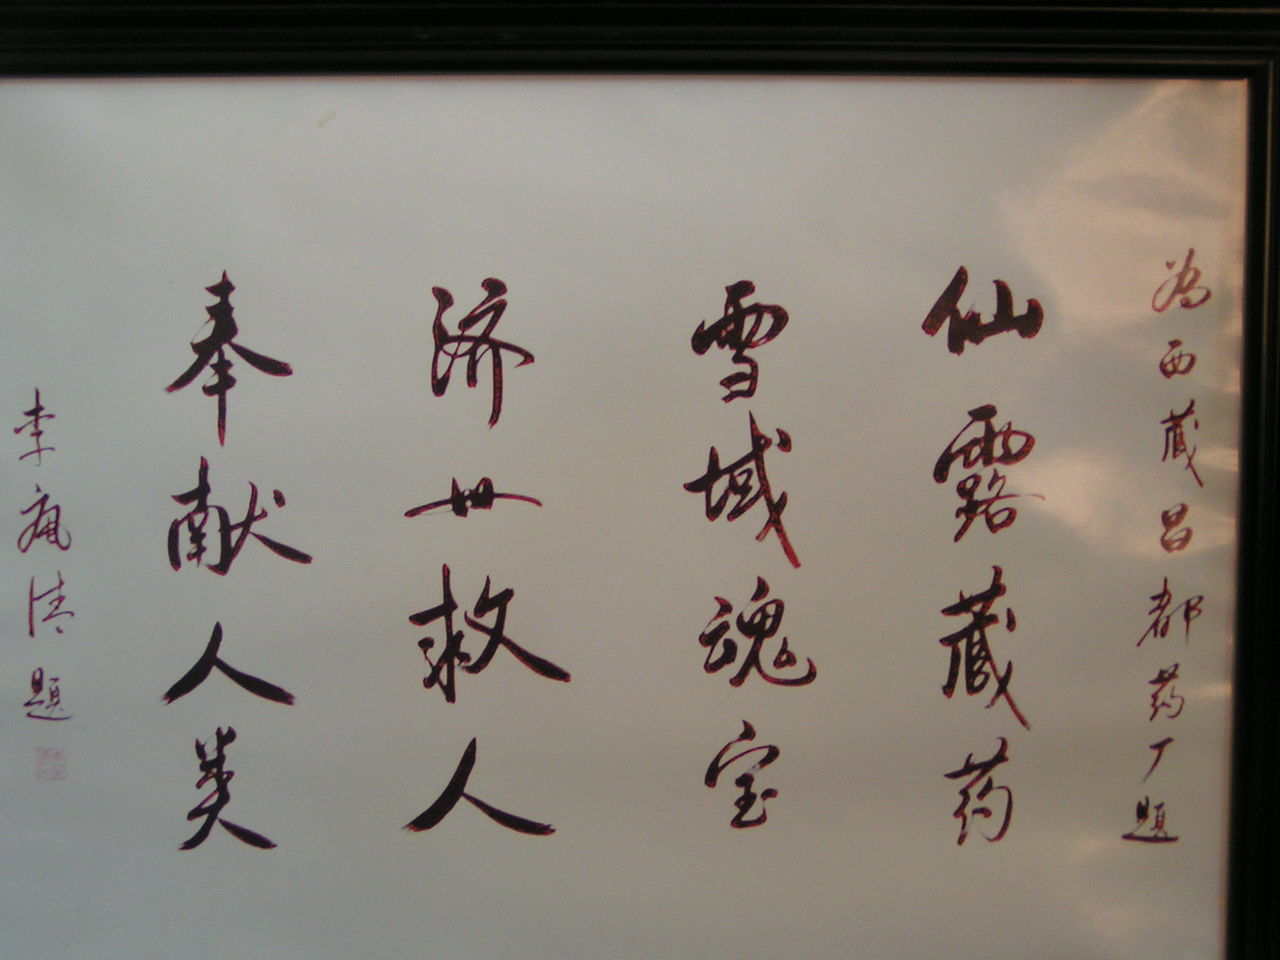 为西藏昌都药厂题
仙露藏药
雪域魂宝
济世救人
奉献人类
李 清题